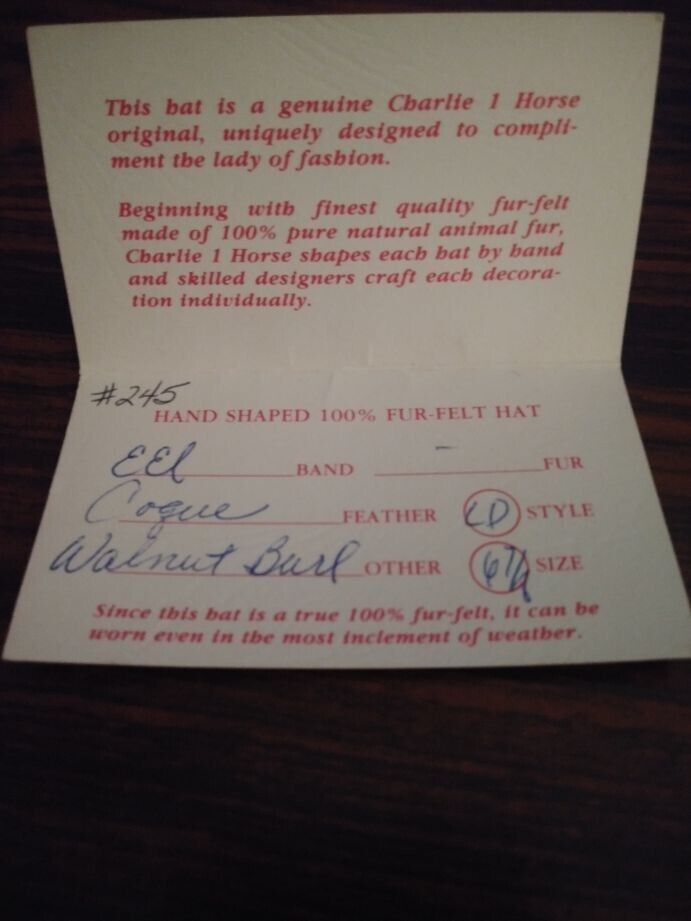 This hat is a genuine Charlie 1 Horse
original, uniquely designed to compli-
ment the lady of fashion.
Beginning with finest quality fur-felt
made of 100% pure natural animal fur,
Charlie 1 Horse shapes each hat by hand
and skilled designers craft each decora-
tion individually.
#245
HAND SHAPED 100% FUR-FELT HAT
EEl BAND - FUR
Coque FEATHER LD STYLE
Walnut Burl OTHER 6 7/8 SIZE
Since this hat is a true 100% fur-felt, it can be
worn even in the most inclement of weather.